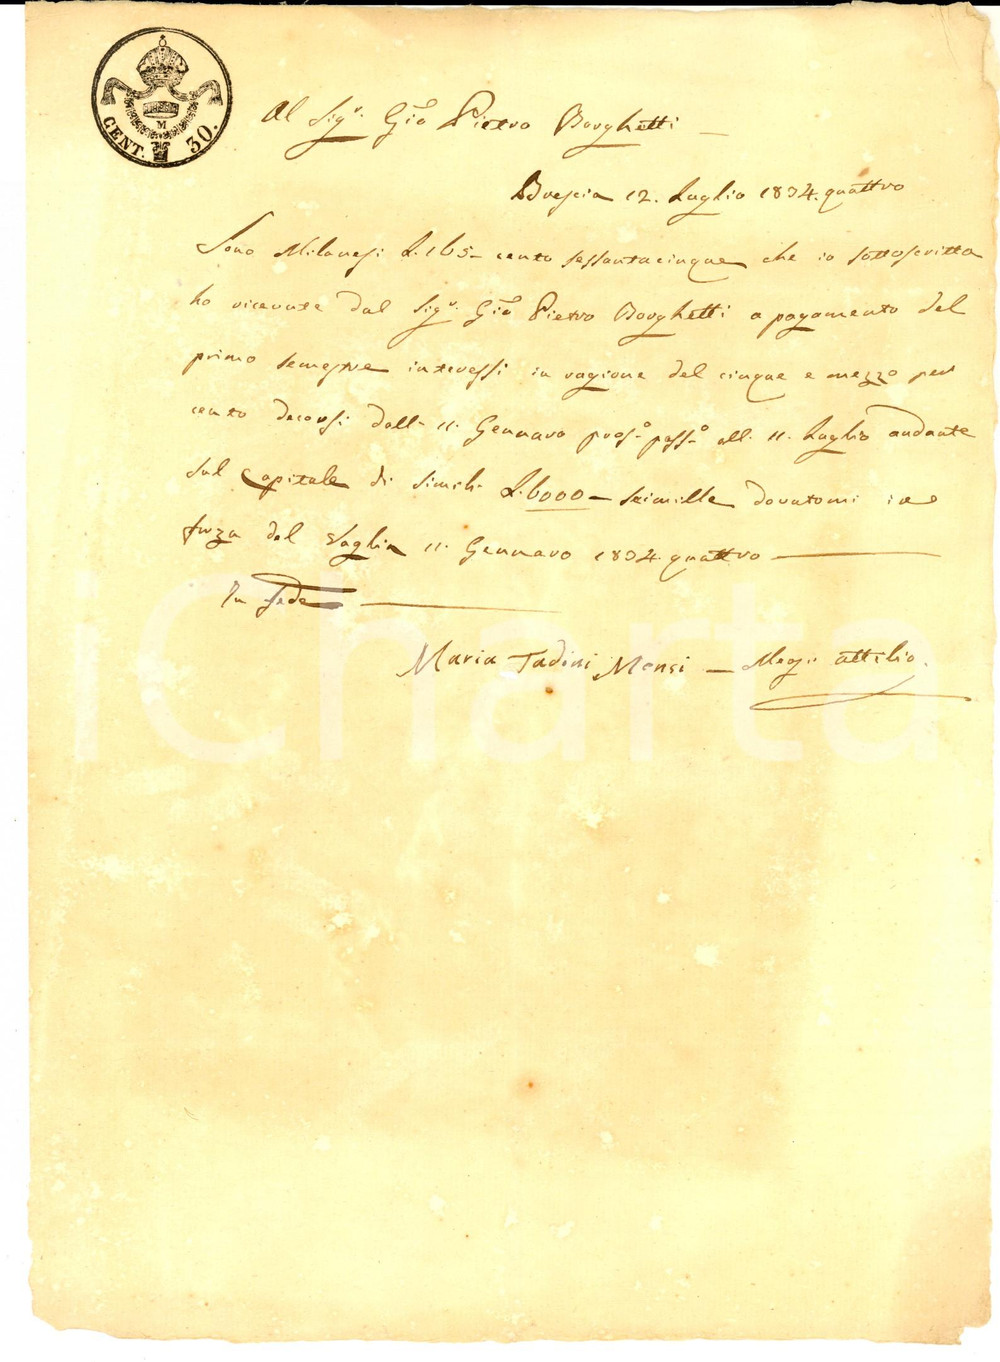 CENT. 30.
M
Al Sigr. Gio Pietro Borghetti
Brescia 12. Luglio 1834. quattro
Sono Milanesi L. 165 - cento sessantacinque che io sottoscritta
ho ricevute dal Sigr. Gio Pietro Borghetti a pagamento del
primo semestre interessi in ragione del cinque e mezzo per
cento decorsi dall- 11. Gennaro pros.o pass.o all 11. Luglio andante
sul Capitale di simili L. 6000 - seimille dovutomi in
forza del Vaglia 11. Gennaro 1834. quattro
In fede
Maria Tadini Monsi - Attilio
iCharta